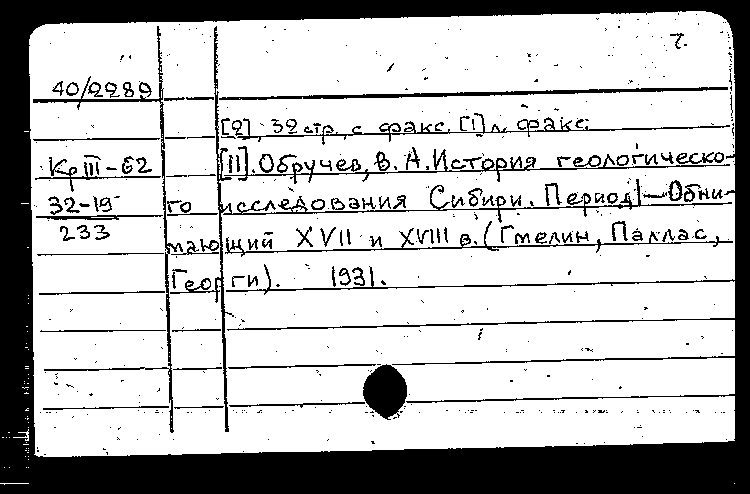 7.
40/2289
[2], 32 стр. с факс. [1] л. факс.
Кр III-62
[11]. Обручев, В. А. История геологическо-
32-19
го исследования Сибири. Период I — Обни-
233
мающий XVII и XVIII в. (Гмелин, Паллас,
Георги). 1931.